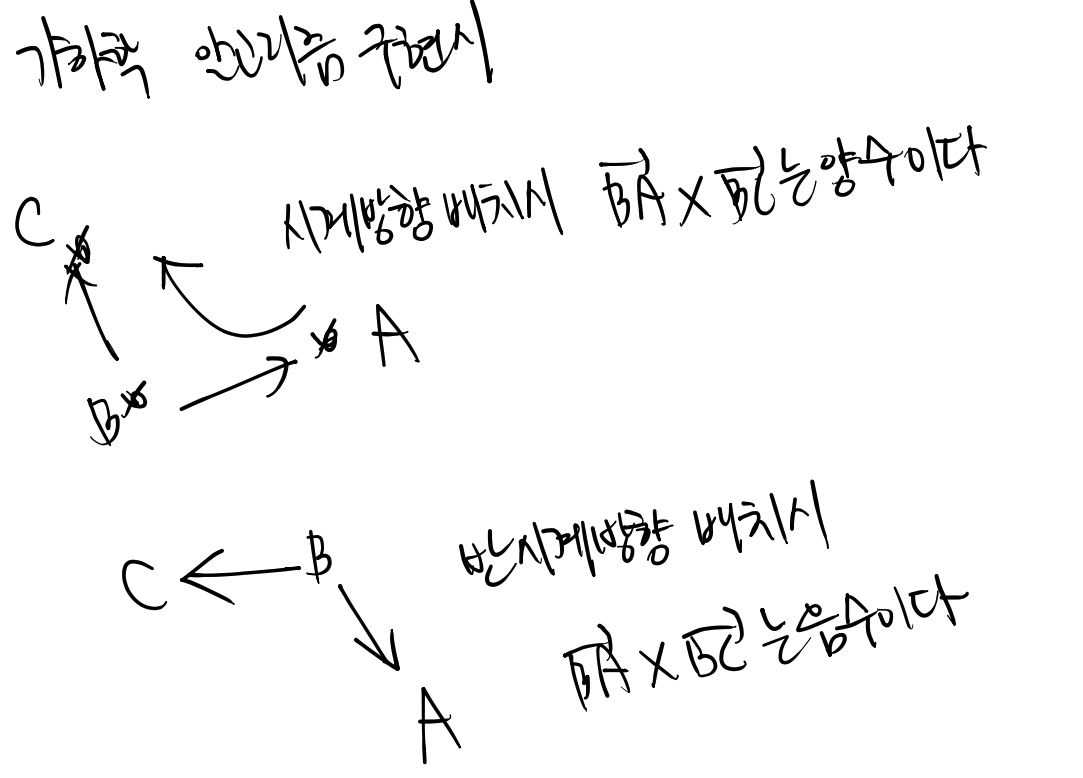 기하학 알고리즘 구현시
시계방향 배치시 BA × BC 는 양수이다
C
A
B
반시계방향 배치시
C B
BA × BC 는 음수이다
A